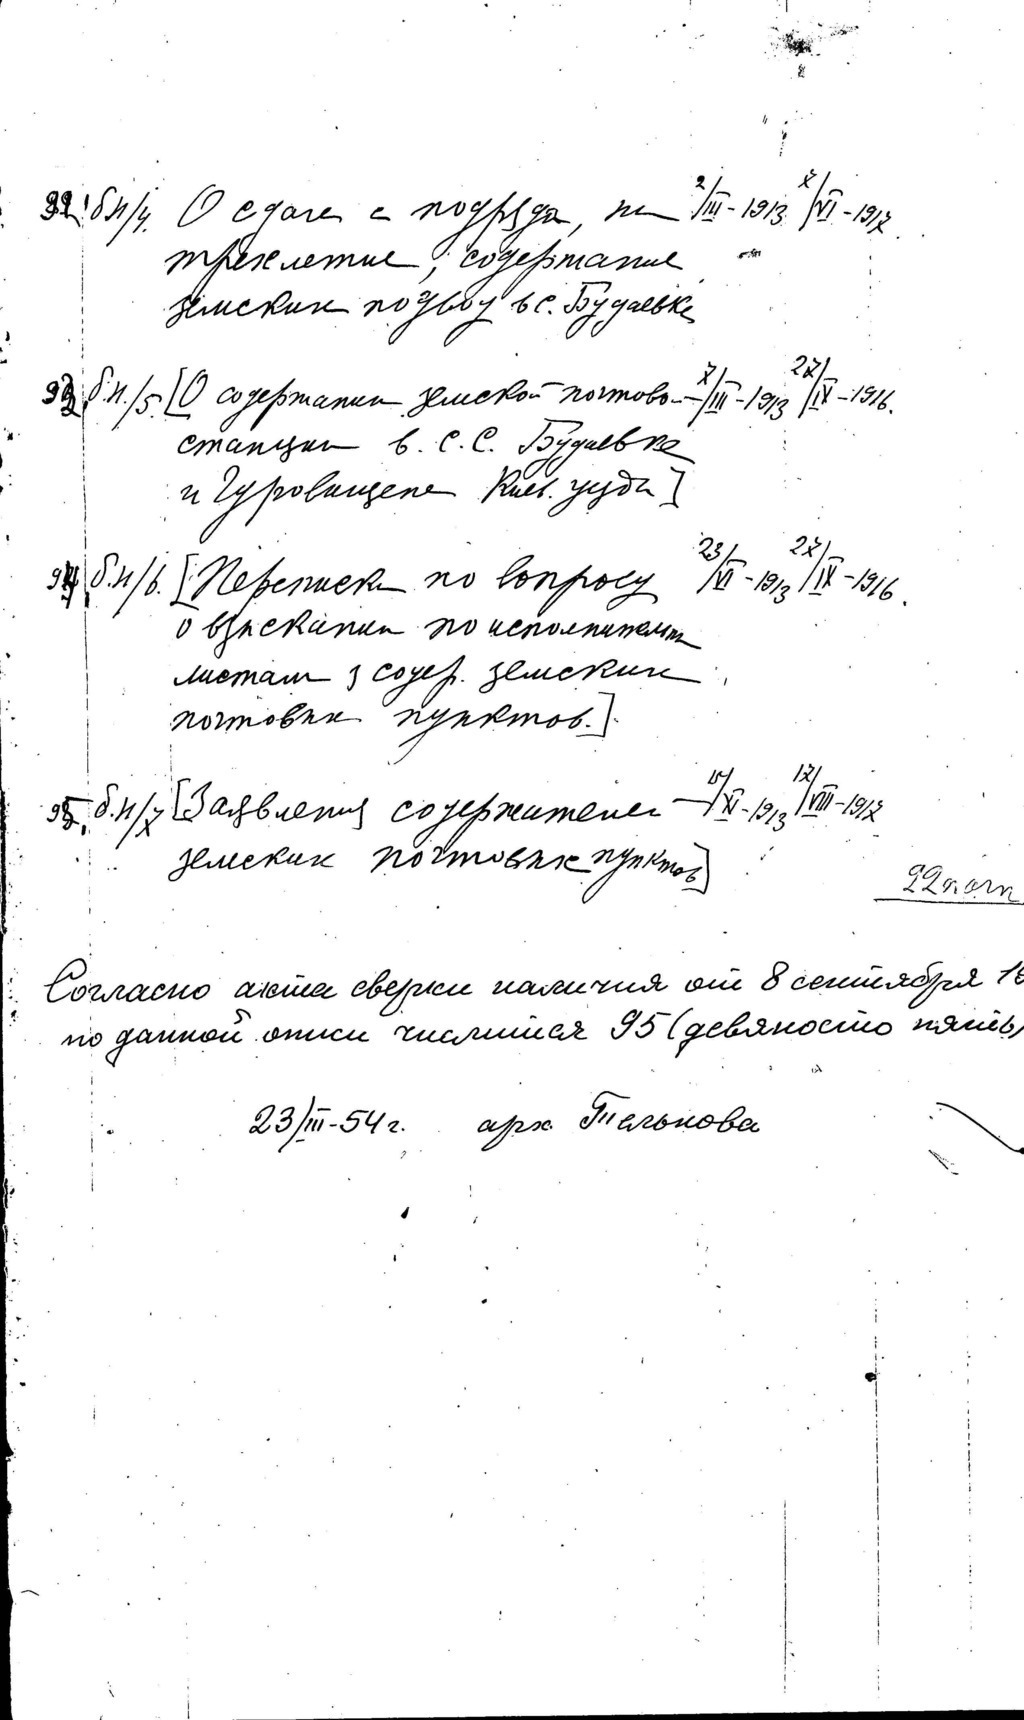 92. б.н/4. О сдаче с подряда, на 2/III-1913 7/VI-1917
трехлетие, содержание
земских подвод в с. Будаевке
93. б.н./5. [О содержании земской почтово- 7/III-1913 27/IX-1916.
станции в. с. с. Будаевке
и Гуровщене Киев. уезда]
94. б.н/6. [Переписка по вопросу 23/VI-1913 27/IX-1916.
о взыскании по исполнительн
листам з содер. земских
почтовых пунктов.]
95. б.н/7 [Заявления содержателей 15/XI-1913 17/VIII-1917
земских почтовых пунктов]
Согласно акта сверки наличия от 8 сентября 19
по данной описи числится 95 (девяносто пять)
23/III-54 г. арх. Телькова